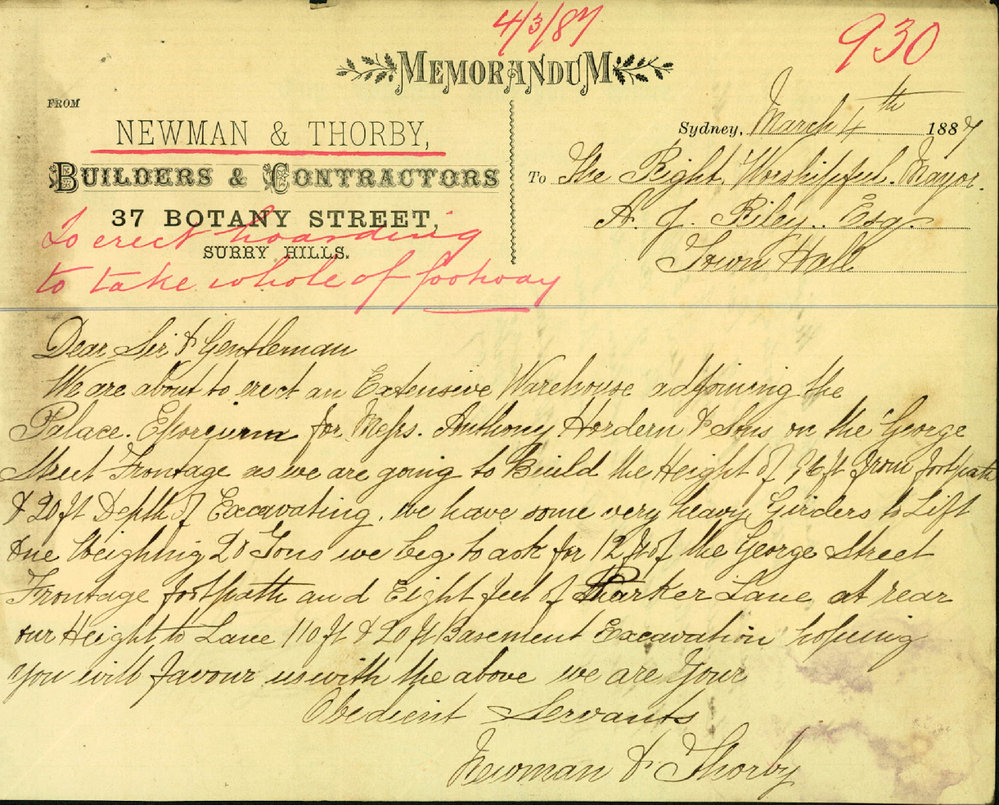 4/3/87
930
MEMORANDUM
FROM
NEWMAN & THORBY,
BUILDERS & CONTRACTORS
37 BOTANY STREET,
SURRY HILLS.
To erect hoarding
to take whole of footway
Sydney, March 4th 1887
To The Right Worshipful Mayor.
A. J. Riley. Esq.
Town Hall
Dear Sir & Gentleman
We are about to erect an Extensive Warehouse adjoining the
Palace. Emporium for Messrs. Anthony Hordern & Sons on the George
Street Frontage as we are going to Build the Height of 96 ft from footpath
& 20 ft Depth of Excavating. we have some very heavy Girders to Lift
one Weighing 20 Tons we beg to ask for 12 ft of the George Street
Frontage footpath and Eight feet of Parker Lane at rear
our Height to Lane 110 ft & 20 ft Basement Excavation hopeing
you will favour us with the above we are Your
Obedient Servants
Newman & Thorby